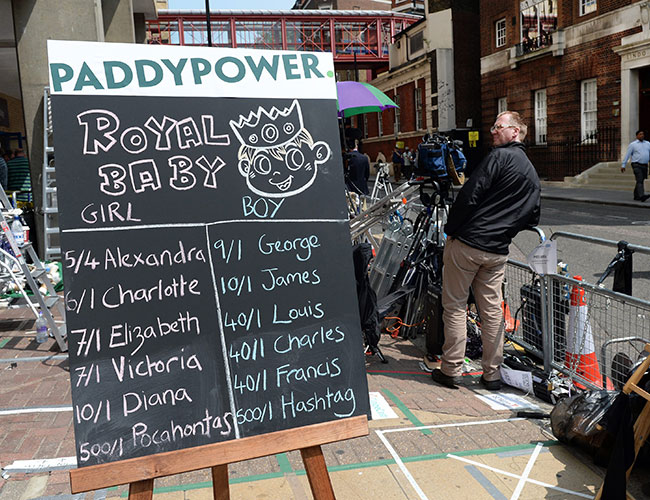 PADDYPOWER.
ROYAL
BABY
GIRL
BOY
5/4 Alexandra
6/1 Charlotte
7/1 Elizabeth
7/1 Victoria
10/1 Diana
500/1 Pocahontas
9/1 George
10/1 James
40/1 Louis
40/1 Charles
40/1 Francis
500/1 Hashtag